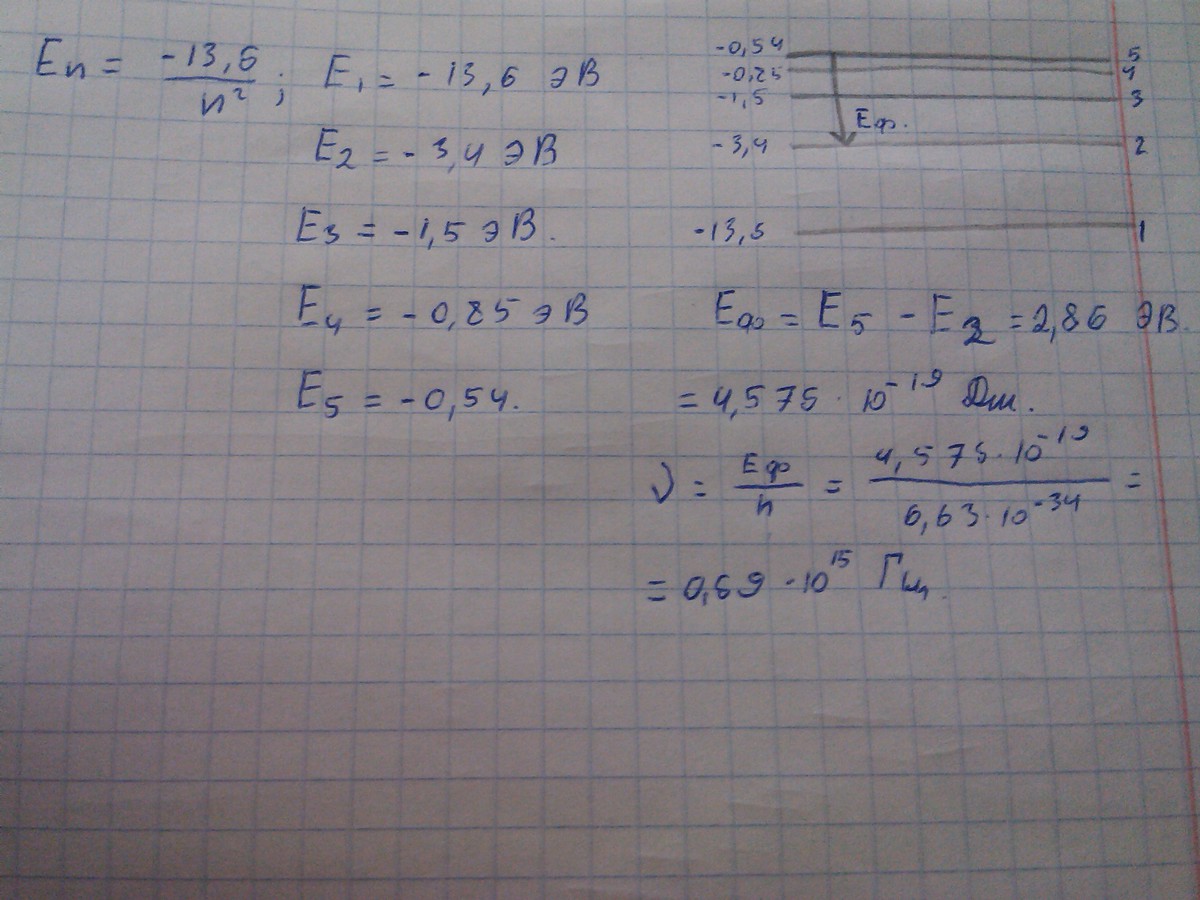 En = -13,6 / n² ; E₁ = -13,6 эВ
E₂ = -3,4 эВ
E₃ = -1,5 эВ.
E₄ = -0,85 эВ
E₅ = -0,54.
-0,54 5
-0,85 4
-1,5 3
Eф.
-3,4 2
-13,5 1
Eф = E₅ - E₂ = 2,86 эВ.
= 4,575 · 10⁻¹⁹ Дж.
ν = Eф / h = 4,575 · 10⁻¹⁹ / 6,63 · 10⁻³⁴ =
= 0,69 · 10¹⁵ Гц.